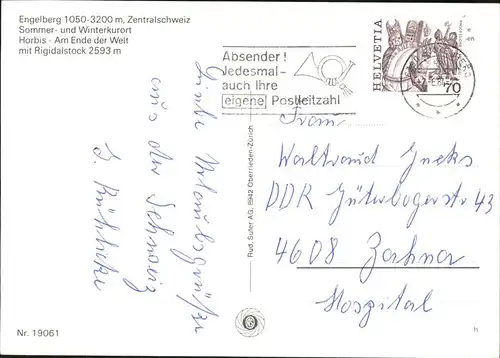 Engelberg 1050-3200 m, Zentralschweiz
Sommer- und Winterkurort
Horbis - Am Ende der Welt
mit Rigidalstock 2593 m
Absender!
Jedesmal-
auch Ihre
eigene Postleitzahl
HELVETIA
70
Liebe Urlaubsgrüße
aus der Schweiz
Frau
Waltraud
DDR Jüterbogerstr 43
4608 Zahna
Hospital
Rud. Suter AG, 8942 Oberrieden-Zürich
Nr. 19061
h